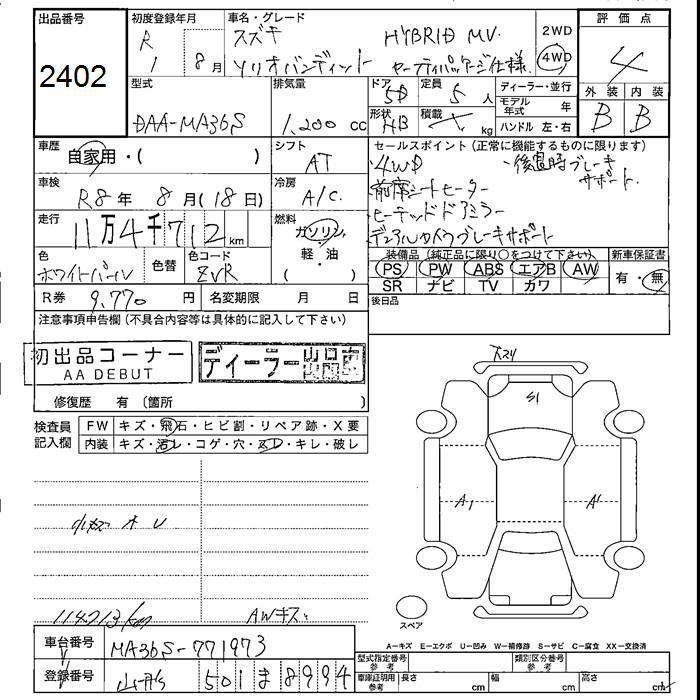 出品番号
2402
初度登録年月
R 1 8月
車名・グレード
スズキ HYBRID MV
ソリオバンディット セーフティパッケージ仕様
2WD
4WD
評価点
4
外装 内装
B B
型式
DAA-MA36S
排気量
1,200 cc
ドア 5D
形状 HB
定員 5 人
積載 kg
ディーラー・並行
モデル年式 年
ハンドル 左・右
車歴
自家用・( )
シフト
AT
車検
R8年 8月(18日)
冷房
A/C
走行
11万4千712km
燃料
ガソリン
軽・油
( )
色
ホワイトパール
色替
色コード
ZVR
R券 9,770 円
名変期限 月 日
セールスポイント(正常に機能するものに限ります)
・4WD ・後退時ブレーキサポート
・前席シートヒーター
・ヒーテッドドアミラー
・デュアルカメラブレーキサポート
装備品(純正品に限り○をつけて下さい)
PS PW ABS エアB AW
SR ナビ TV カワ
新車保証書
有・無
後日品
注意事項申告欄(不具合内容等は具体的に記入して下さい)
初出品コーナー
AA DEBUT
ディーラー
修復歴 有 (箇所 )
検査員記入欄
FW キズ・飛石・ヒビ割・リペア跡・X要
内装 キズ・汚レ・コゲ・穴・スレ・キレ・破レ
小キズ オ U
114713km
AWキズ
S1
A1
A1
スペア
A-キズ E-エクボ U-凹み W-補修跡 S-サビ C-腐食 XX-交換済
車台番号
MA36S-771973
登録番号
山形 501 ま 8994
型式指定番号
参考
類別区分番号
参考
車庫証明用
参考
長さ cm
幅 cm
高さ cm